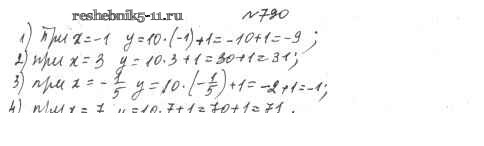 reshebnik5-11.ru
№790
1) При x=-1 y=10·(-1)+1=-10+1=-9;
2) при x=3 y=10·3+1=30+1=31;
3) при x=-1/5 y=10·(-1/5)+1=-2+1=-1;
4) при x=7 y=10·7+1=70+1=71.